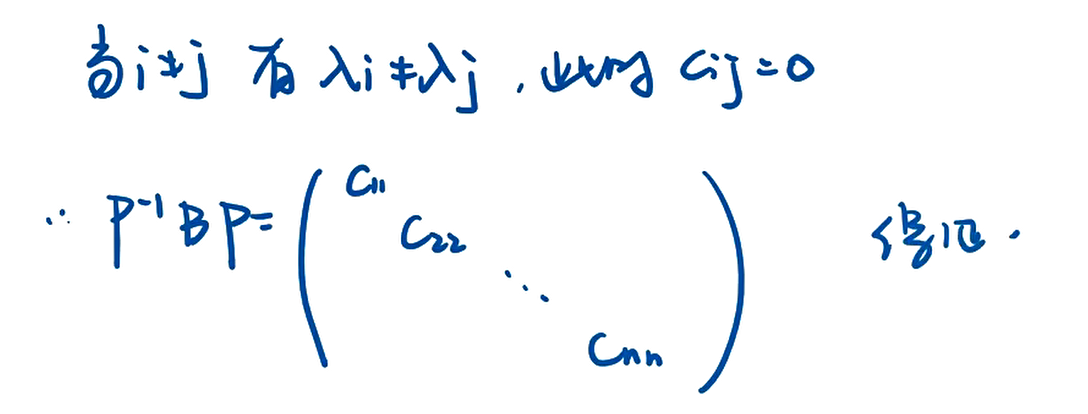 当i≠j 有 λi≠λj,此时 Cij=0
∴ P⁻¹BP=(C₁₁ C₂₂ ⋱ Cₙₙ) 得证.